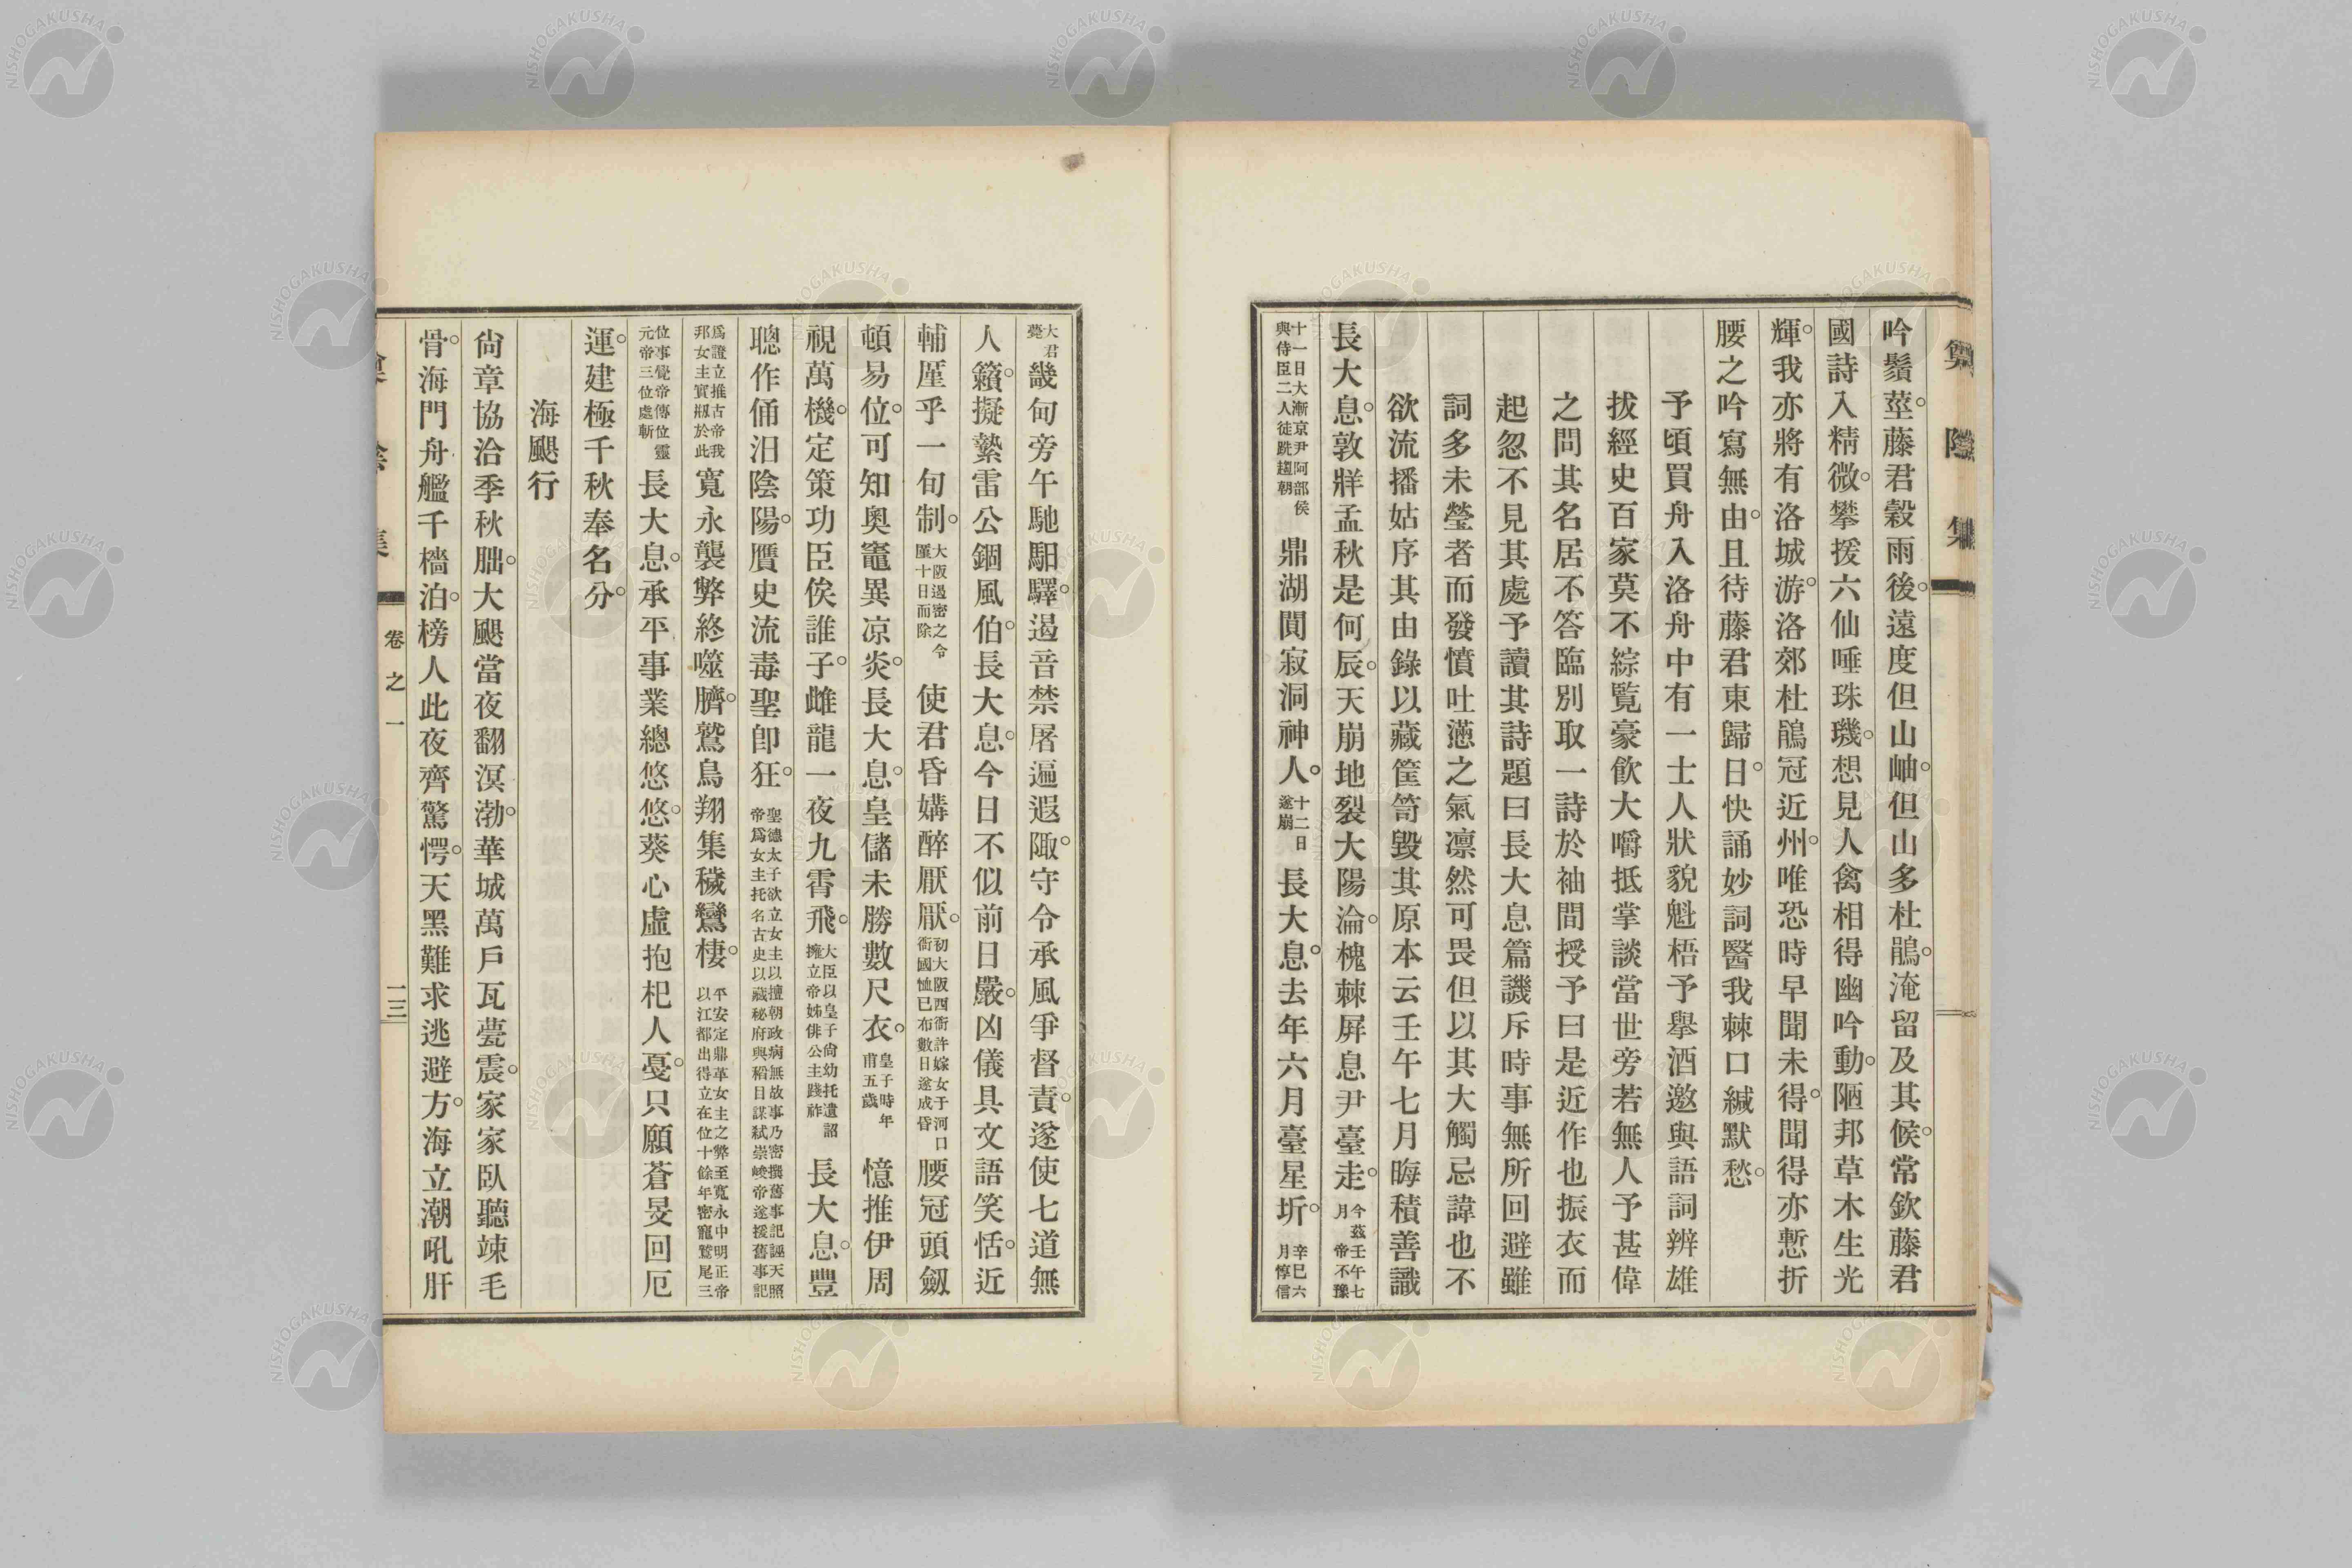 吟鬚莖藤君穀雨後遠度但山岫但山多杜鵑淹留及其候常欽藤君
國詩入精微攀援六仙唾珠璣想見人禽相得幽吟動陋邦草木生光
輝我亦將有洛城游洛郊杜鵑冠近州唯恐時早聞未得聞得亦慙折
腰之吟寫無由且待藤君東歸日快誦妙詞醫我棘口緘默愁
予頃買舟入洛舟中有一士人狀貌魁梧予舉酒邀與語詞辨雄
拔經史百家莫不綜覽豪飮大嚼抵掌談當世旁若無人予甚偉
之問其名居不答臨別取一詩於袖間授予曰是近作也振衣而
起忽不見其處予讀其詩題曰長大息篇譏斥時事無所回避雖
詞多未瑩者而發憤吐懣之氣凛然可畏但以其大觸忌諱也不
欲流播姑序其由錄以藏筐笥毀其原本云壬午七月晦積善識
長大息敦牂孟秋是何辰天崩地裂大陽淪槐棘屛息尹臺走今茲壬午七月帝不豫
十一日大漸京尹阿部侯與侍臣二人徒跣趨朝鼎湖閴寂洞神人十二日遂崩長大息去年六月臺星圻辛巳六月惇信
大君薨畿甸旁午馳馹驛遏音禁屠遍遐陬守令承風爭督責遂使七道無
人籟擬蟄雷公錮風伯長大息今日不似前日嚴凶儀具文語笑恬近
輔厪乎一旬制大阪遏密之令厪十日而除使君昏媾醉厭厭初大阪西衙許嫁女于河口衙國恤已布數日遂成昏腰冠頭劔
頓易位可知奧竈異凉炎長大息皇儲未勝數尺衣皇子時年甫五歲憶推伊周
視萬機定策功臣俟誰子雌龍一夜九霄飛大臣以皇子尙幼托遺詔擁立帝姊俳公主踐祚長大息豐
聰作俑汨陰陽贋史流毒聖卽狂聖德太子欲立女主以擅朝政病無故事乃密撰舊事記誣天照帝爲女主托名古史以藏秘府與稻目謀弑崇峻帝遂援舊事記
爲證立推古帝我邦女主實刱於此寬永襲弊終噬臍鷲鳥翔集穢鸞棲平安定鼎革女主之弊至寬永中明正帝以江都出得立在位十餘年密寵鷲尾三
位事覺帝傳位靈元帝三位處斬長大息承平事業總悠悠葵心虛抱杞人憂只願蒼旻回厄
運建極千秋奉名分
海颶行
尙章協洽季秋朏大颶當夜翻溟渤華城萬戶瓦甍震家家臥聽竦毛
骨海門舟艦千檣泊榜人此夜齊驚愕天黑難求逃避方海立潮吼肝
卷之一
一三